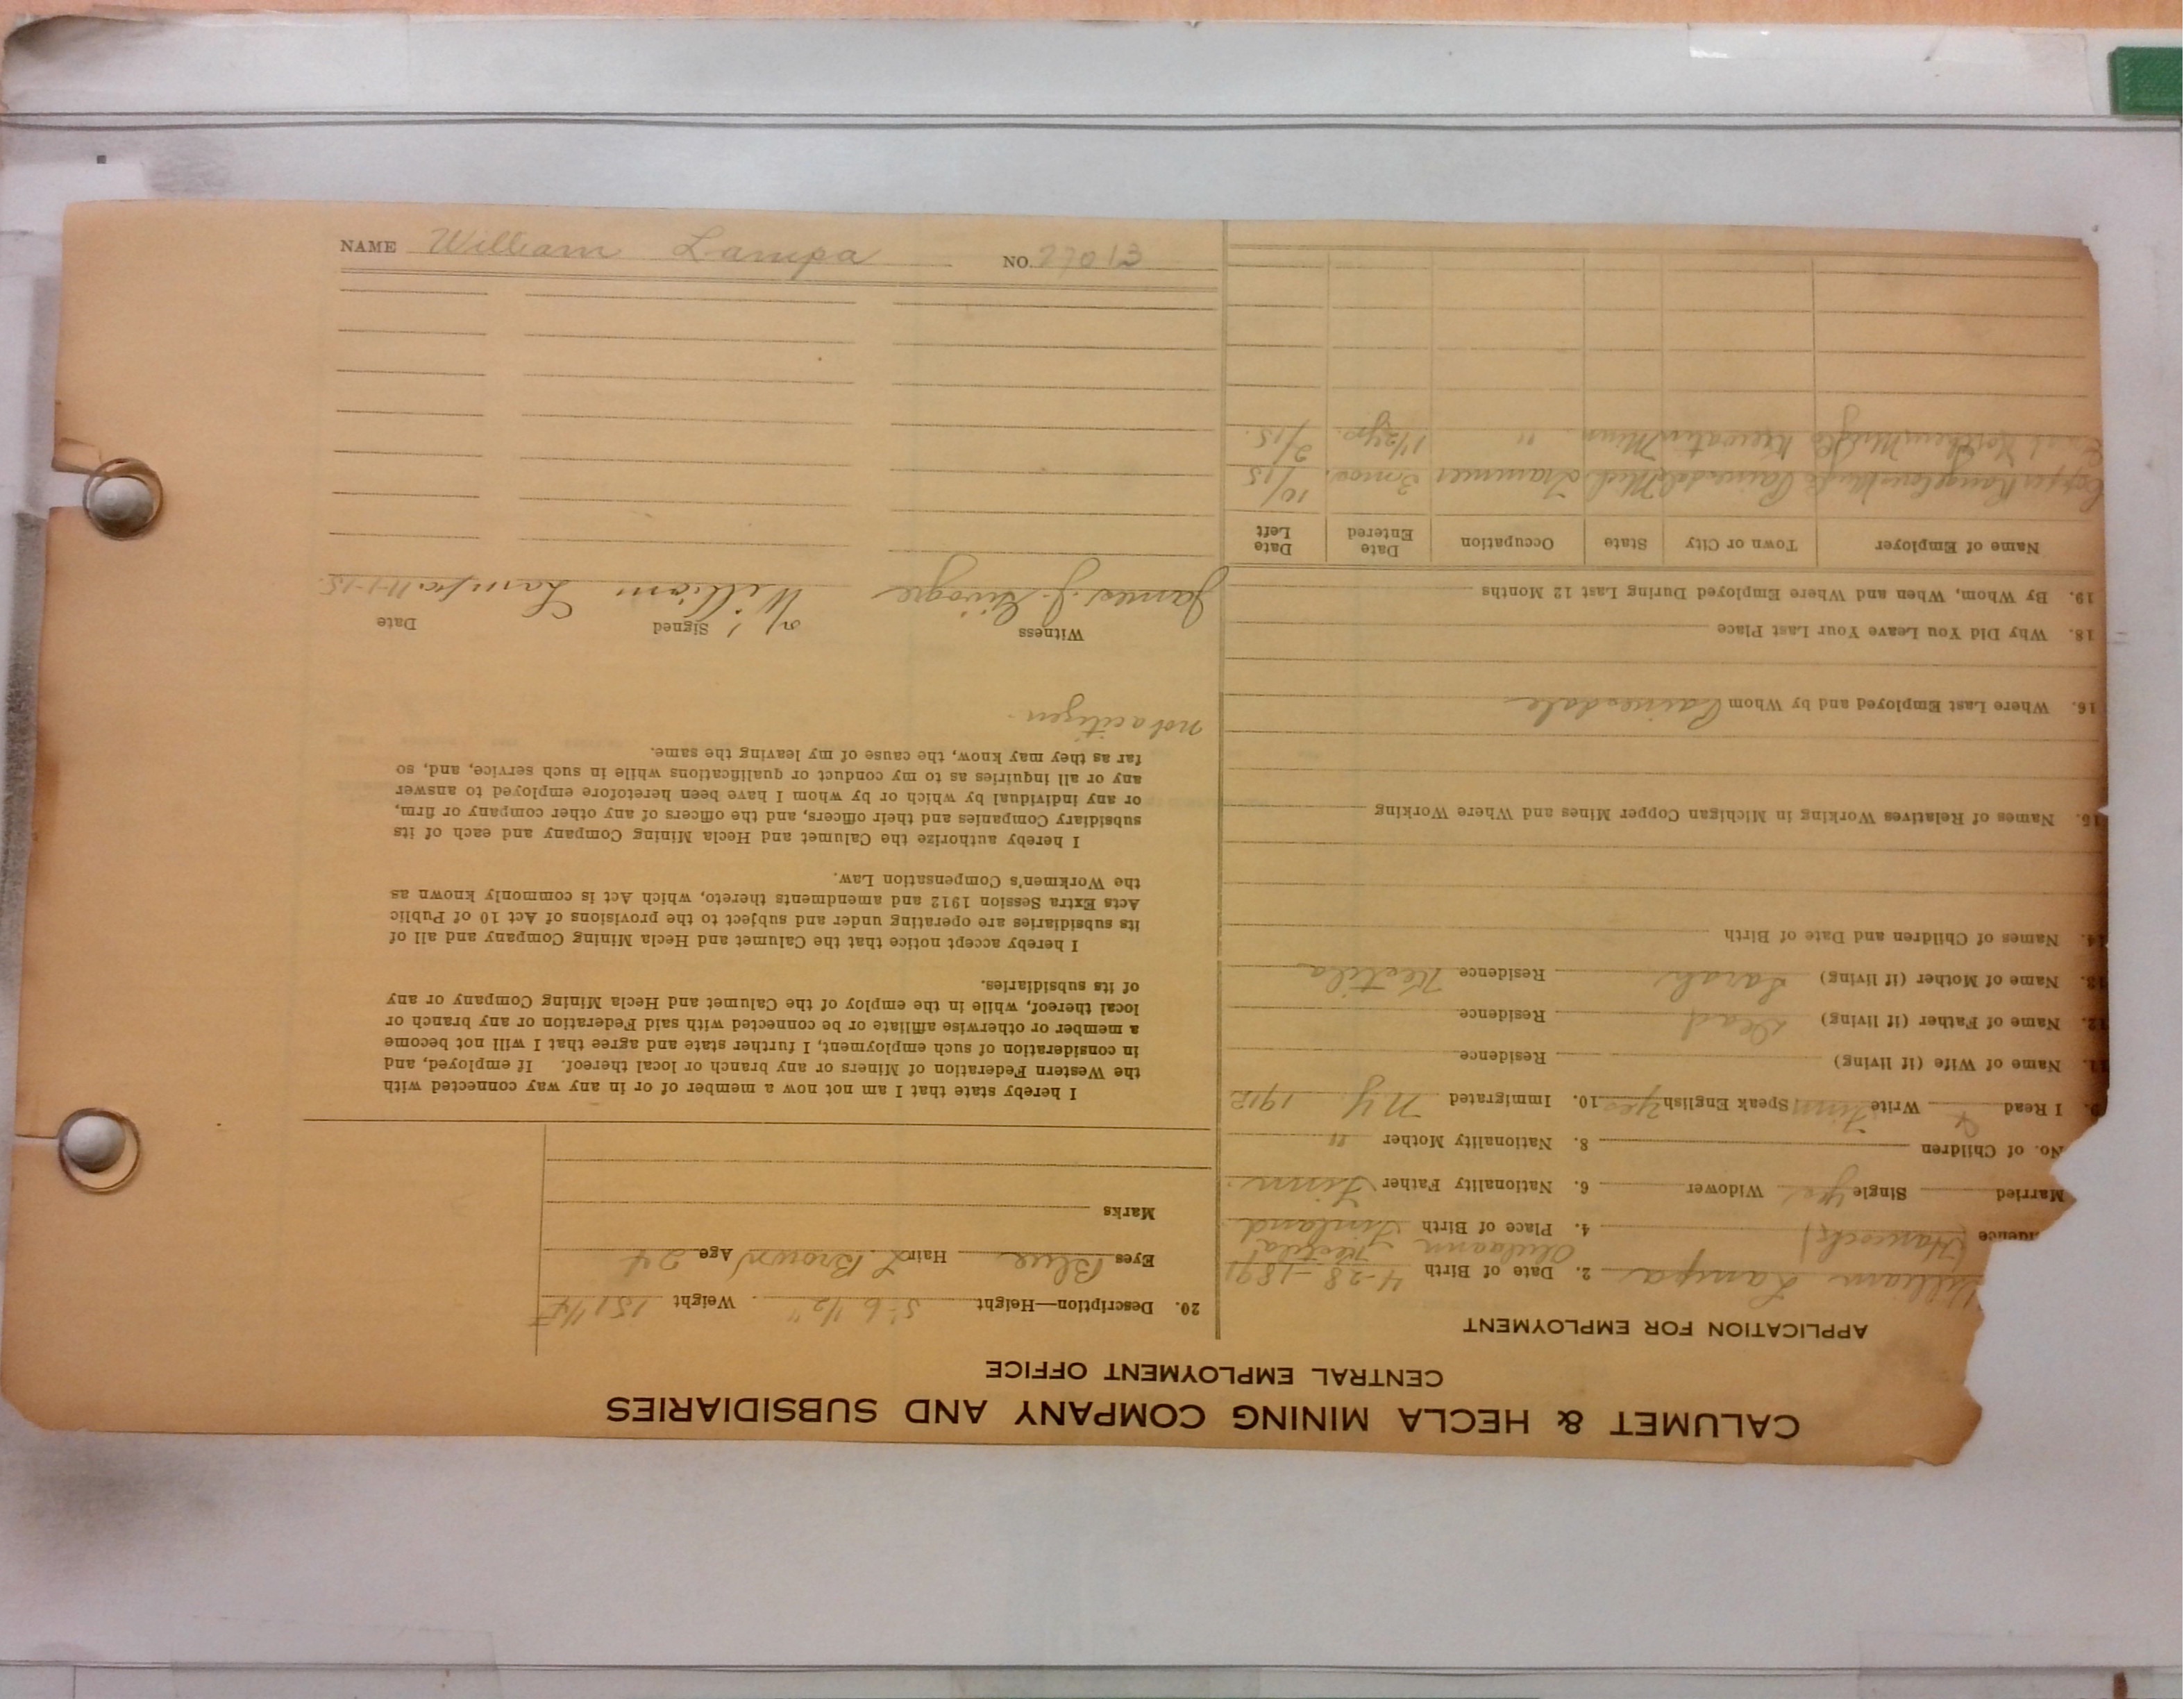 CALUMET & HECLA MINING COMPANY AND SUBSIDIARIES
CENTRAL EMPLOYMENT OFFICE
APPLICATION FOR EMPLOYMENT
William Lampa 2. Date of Birth 4-28-1891
(Hancock) 4. Place of Birth Finland
Married Single yes Widower 6. Nationality Father Finn
No. of Children 8. Nationality Mother "
I Read & Write Finn Speak English yes 10. Immigrated N.Y. 1912
11. Name of Wife (if living) Residence
12. Name of Father (if living) Dead Residence
13. Name of Mother (if living) Sarah Residence
14. Names of Children and Date of Birth
15. Names of Relatives Working in Michigan Copper Mines and Where Working
16. Where Last Employed and by Whom Painesdale
18. Why Did You Leave Your Last Place
19. By Whom, When and Where Employed During Last 12 Months
Name of Employer Town or City State Occupation Date Entered Date Left
Copper Range Painesdale Mich Trammer 3 mos. 10/15
Keewatin Minn " 1 1/2 yr. 2/15.
20. Description—Height 5' 6 1/2" Weight 151
Eyes Blue Hair L Brown Age 24
Marks
I hereby state that I am not now a member of or in any way connected with
the Western Federation of Miners or any branch or local thereof. If employed, and
in consideration of such employment, I further state and agree that I will not become
a member or otherwise affiliate or be connected with said Federation or any branch or
local thereof, while in the employ of the Calumet and Hecla Mining Company or any
of its subsidiaries.
I hereby accept notice that the Calumet and Hecla Mining Company and all of
its subsidiaries are operating under and subject to the provisions of Act 10 of Public
Acts Extra Session 1912 and amendments thereto, which Act is commonly known as
the Workmen's Compensation Law.
I hereby authorize the Calumet and Hecla Mining Company and each of its
subsidiary Companies and their officers, and the officers of any other company or firm,
or any individual by which or by whom I have been heretofore employed to answer
any or all inquiries as to my conduct or qualifications while in such service, and, so
far as they may know, the cause of my leaving the same.
not a citizen.
Witness Signed Date
James J. William Lampa 11-1-15.
NAME William Lampa NO. 27013